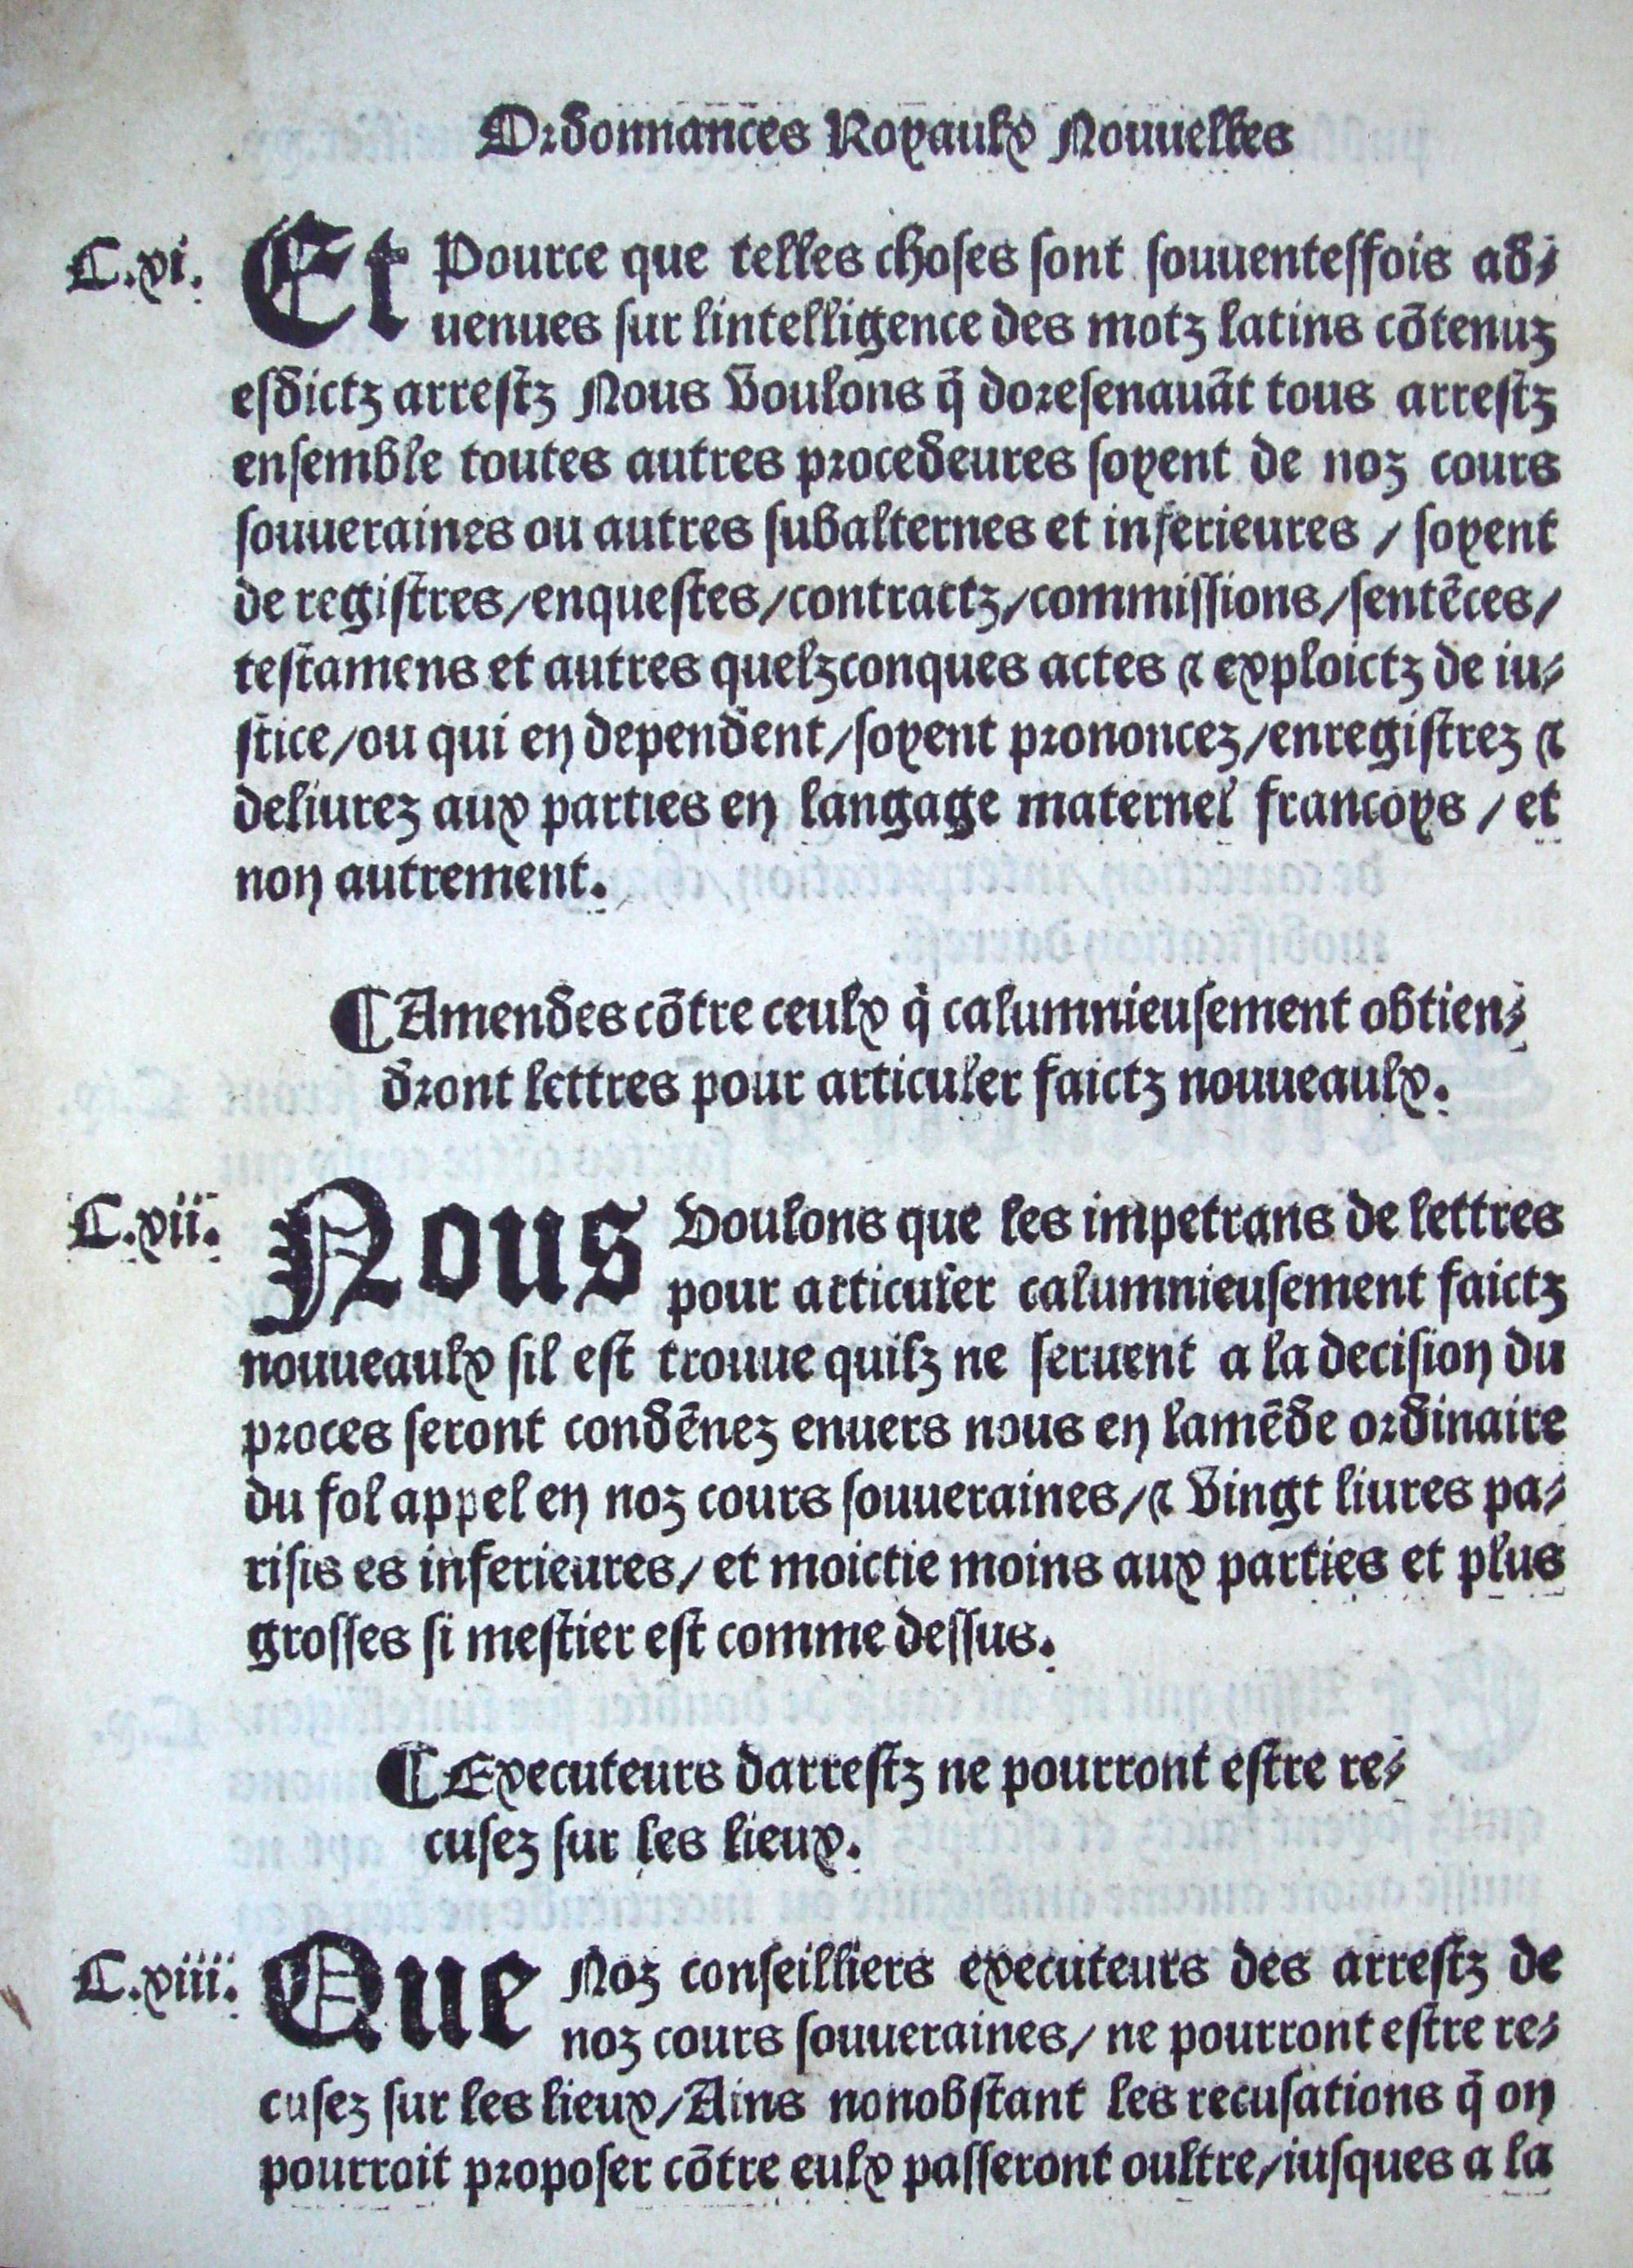 Ordonnances Royaulx Nouuelles
C.xi. Et Pource que telles choses sont souuentesfois ad⸗
uenues sur lintelligence des motz latins cõtenuz
esdictz arrestz Nous voulons q̃ doresenauãt tous arrestz
ensemble toutes autres procedeures soyent de noz cours
souueraines ou autres subalternes et inferieures / soyent
de registres/enquestes/contractz/commissions/sentẽces/
testamens et autres quelzconques actes ⁊ exploictz de iu⸗
stice/ou qui en dependent/soyent prononcez/enregistrez ⁊
deliurez aux parties en langage maternel francoys / et
non autrement.
¶ Amendes cõtre ceulx q̇ calumnieusement obtien⸗
dront lettres pour articuler faictz nouueaulx.
C.xii. Nous voulons que les impetrans de lettres
pour articuler calumnieusement faictz
nouueaulx sil est trouue quilz ne seruent a la decision du
proces seront condẽnez enuers nous en lamẽde ordinaire
du fol appel en noz cours souueraines/⁊ vingt liures pa⸗
risis es inferieures/ et moictie moins aux parties et plus
grosses si mestier est comme dessus.
¶ Executeurs darrestz ne pourront estre re⸗
cusez sur les lieux.
C.xiii. Que Noz conseilliers executeurs des arrestz de
noz cours souueraines/ ne pourront estre re⸗
cusez sur les lieux/Ains nonobstant les recusations q̃ on
pourroit proposer cõtre eulx passeront oultre/iusques a la